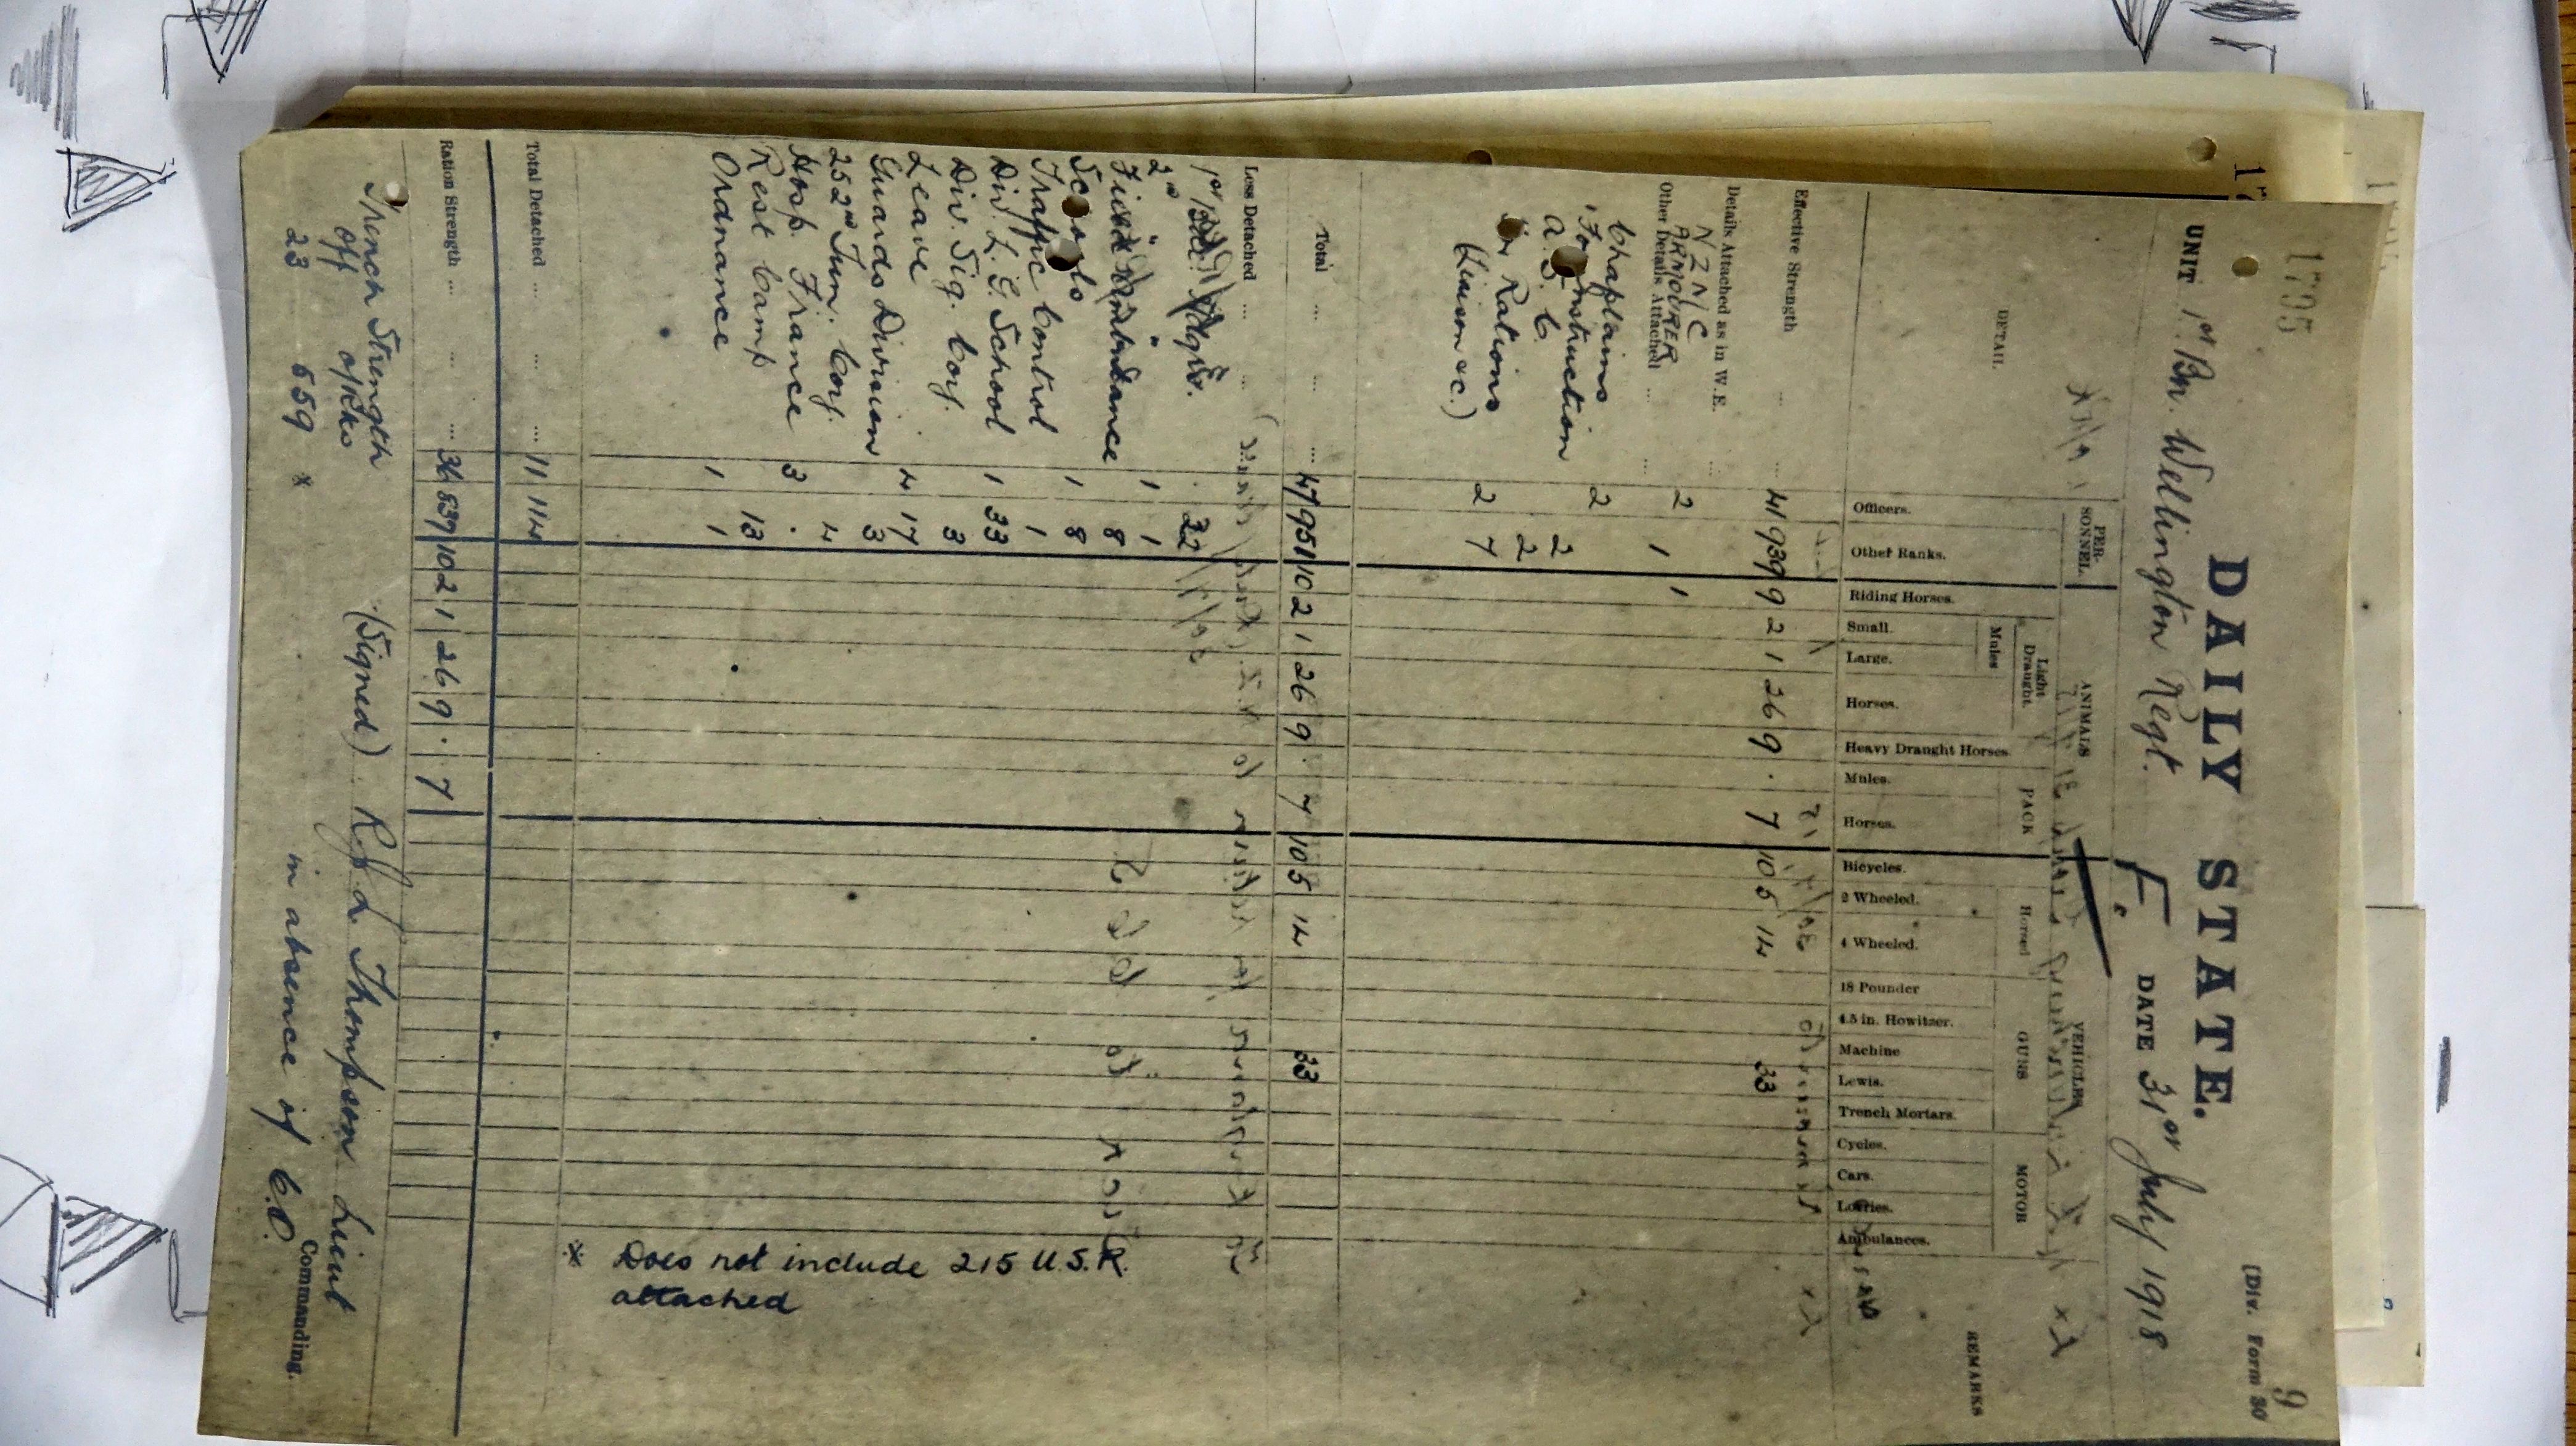 1795
9
DAILY STATE.
(Div. Form 30
UNIT 1st Bn. Wellington Regt.
F.
DATE 31st July 1918
DETAIL
PER-
SONNEL.
ANIMALS
VEHICLES
REMARKS
Light
Draught.
PACK
Horsed
GUNS
MOTOR
Mules
Officers.
Other Ranks.
Riding Horses.
Small.
Large.
Horses.
Heavy Draught Horses.
Mules.
Horses.
Bicycles.
2 Wheeled.
4 Wheeled.
18 Pounder
4.5 in. Howitzer.
Machine
Lewis.
Trench Mortars.
Cycles.
Cars.
Lorries.
Ambulances.
Effective Strength ... 41 939 9 2 1 26 9 . 7 10 5 14 33
Details Attached as in W.E. ...
N Z N C 2 1
ARMOURER 1
Other Details Attached ...
Chaplains 2
For Instruction 2
A. S. C. 2
for Rations 2 7
(Liaison &c.)
Total ... ... ... 47 951 10 2 1 26 9 . 7 10 5 14 33
Less Detached ... ...
1st Bde. Hdqrs. . 32
2nd " " 1 1
Field Ambulance 8
Schools 1 8
Traffic Control 1
Div. L. G. School 1 33
Div. Sig. Coy. 3
Leave 4 17
Guards Division 3
252nd Tun. Coy. 4
Hosp. France 3 .
Rest Camp 13
Ordnance 1 1
* Does not include 215 U.S.R.
attached
Total Detached ... ... ... 11 114
Ration Strength ... ... ... 36 839 10 2 1 26 9 . 7
Trench Strength
Off O/Rks
23 559 *
(Signed) R J L Thompson Lieut
Commanding.
in absence of C.O.